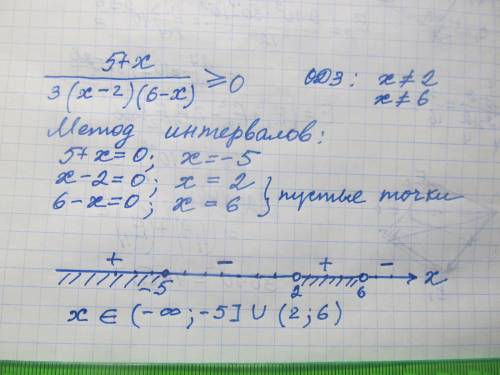 5+x
3(x-2)(6-x) ≥ 0
ОДЗ: x ≠ 2
x ≠ 6
Метод интервалов:
5+x=0; x=-5
x-2=0; x=2
6-x=0; x=6 } пустые точки
+ - + -
-5 2 6 x
x ∈ (-∞; -5] ∪ (2; 6)